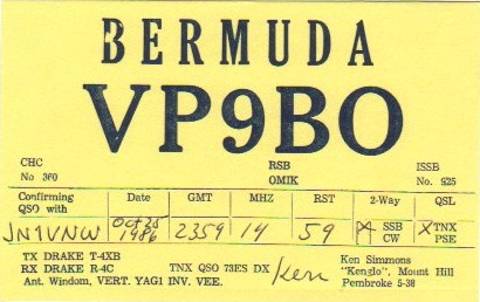 BERMUDA
VP9BO
CHC RSB ISSB
No 360 OMIK No. 925
Confirming QSO with Date GMT MHZ RST 2-Way QSL
JN1VNW Oct 25 1986 2359 14 59 X SSB CW X TNX PSE
TX DRAKE T-4XB
RX DRAKE R-4C TNX QSO 73ES DX Ken
Ant. Windom, VERT. YAG1 INV. VEE.
Ken Simmons
"Kenglo", Mount Hill
Pembroke 5-38